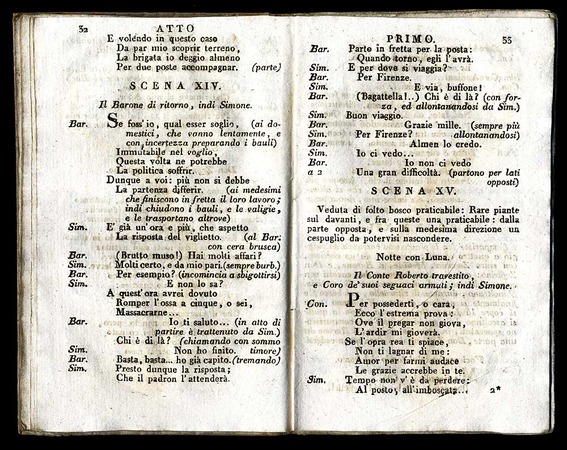 32 ATTO
E volendo in questo caso
Da par mio scoprir terreno,
La brigata io deggio almeno
Per due poste accompagnar. (parte)
SCENA XIV.
Il Barone di ritorno, indi Simone.
Bar. Se foss'io, qual esser soglio, (ai do-
mestici, che vanno lentamente, e
con incertezza preparando i bauli)
Immutabile nel voglio,
Questa volta ne potrebbe
La politica soffrir.
Dunque a voi: più non si debbe
La partenza differir. (ai medesimi
che finiscono in fretta il loro lavoro;
indi chiudono i bauli, e le valigie,
e le trasportano altrove)
Sim. E' già un'ora e più, che aspetto
La risposta del viglietto. (al Bar.
con cera brusca)
Bar. (Brutto muso!) Hai molti affari?
Sim. Molti certo, e da mio pari. (sempre burb.)
Bar. Per esempio? (incomincia a sbigottirsi)
Sim. E non lo sa?
A quest'ora avrei dovuto
Romper l'ossa a cinque, o sei,
Massacrarne...
Bar. Io ti saluto... (in atto di
partire è trattenuto da Sim.)
Chi è di là? (chiamando con sommo
Sim. Non ho finito. timore)
Bar. Basta, basta... ho già capito. (tremando)
Sim. Presto dunque la risposta;
Che il padron l'attenderà.
PRIMO. 33
Bar. Parto in fretta per la posta:
Quando torno, egli l'avrà.
Sim. E per dove si viaggia?
Bar. Per Firenze.
Sim. E via, buffone!
Bar. (Bagattella!..) Chi è di là? (con for-
za, ed allontanandosi da Sim.)
Sim. Buon viaggio.
Bar. Grazie mille. (sempre più
Sim. Per Firenze? allontanandosi)
Bar. Almen lo credo.
Sim. Io ci vedo...
Bar. Io non ci vedo
a 2 Una gran difficoltà. (partono per lati
opposti)
SCENA XV.
Veduta di folto bosco praticabile: Rare piante
sul davanti, e fra queste una praticabile: dalla
parte opposta, e sulla medesima direzione un
cespuglio da potervisi nascondere.
Notte con Luna.
Il Conte Roberto travestito,
e Coro de' suoi seguaci armati; indi Simone.
Con. Per possederti, o cara,
Ecco l'estrema prova:
Ove il pregar non giova,
L'ardir mi gioverà.
Se l'opra rea ti spiace,
Non ti lagnar di me:
Amor per farmi audace
Le grazie accrebbe in te.
Sim. Tempo non v'è da perdere:
Al posto, all'imboscata... 2*